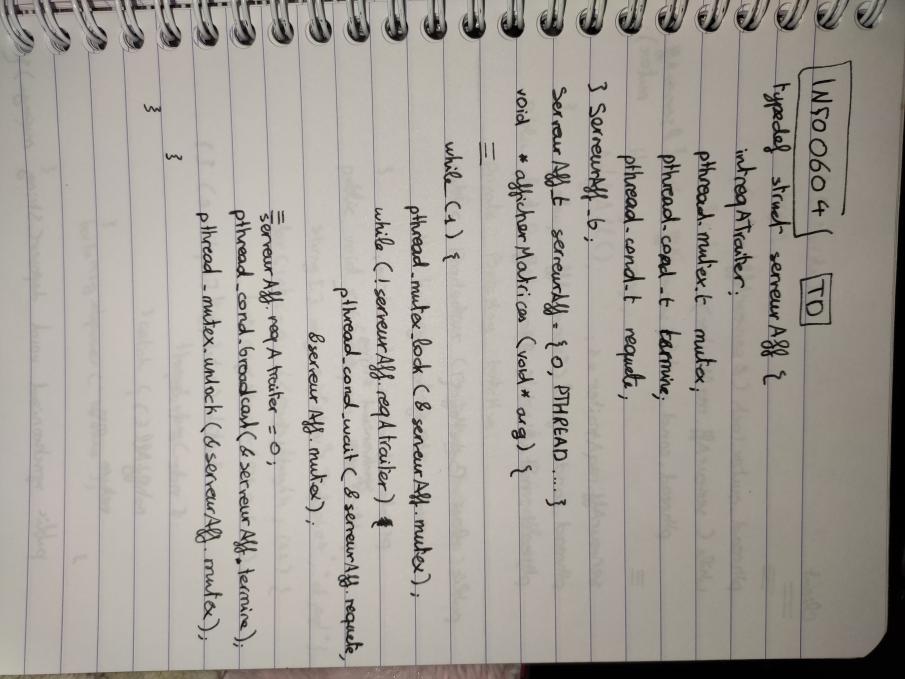 INFO0604 TD
typedef struct serveurAff {
intreqATraiter;
pthread_mutex_t mutex;
pthread_cond_t termine;
pthread_cond_t requete;
} ServeurAff_t;
ServeurAff_t serveurAff = { 0, PTHREAD .... }
void * afficherMatrices (void* arg) {
while (1) {
pthread_mutex_lock (& serveurAff.mutex);
while (! serveurAff.reqAtraiter)
pthread_cond_wait (& serveurAff.requete,
&serveurAff.mutex);
serveurAff.reqAtraiter = 0;
pthread_cond_broadcast(&serveurAff.termine);
pthread_mutex_unlock (&serveurAff.mutex);
}
}